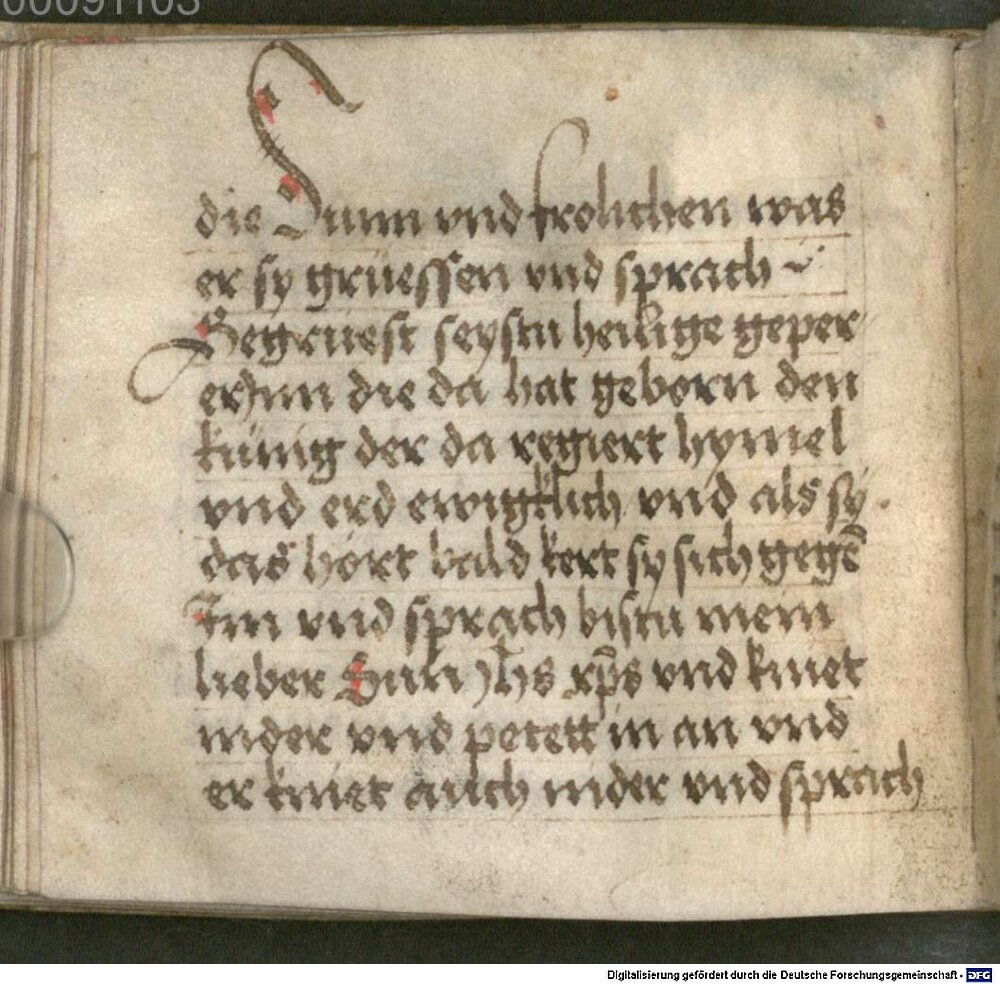 00091103
die Sunn vnd frolichen was
er sy grüessen vnd sprach
Gegrüest seystu heilige geper
erJnn die da hat geborn den
künig der da regiert hymel
vnd erd ewigklich vnd als sy
das hört bald kert sy sich gegē
Im vnd sprach bistu mein
lieber Sun Jhs xp̄s vnd kniet
nider vnd petett in an vnd
er kniet auch nider vnd sprach
Digitalisierung gefördert durch die Deutsche Forschungsgemeinschaft - DFG